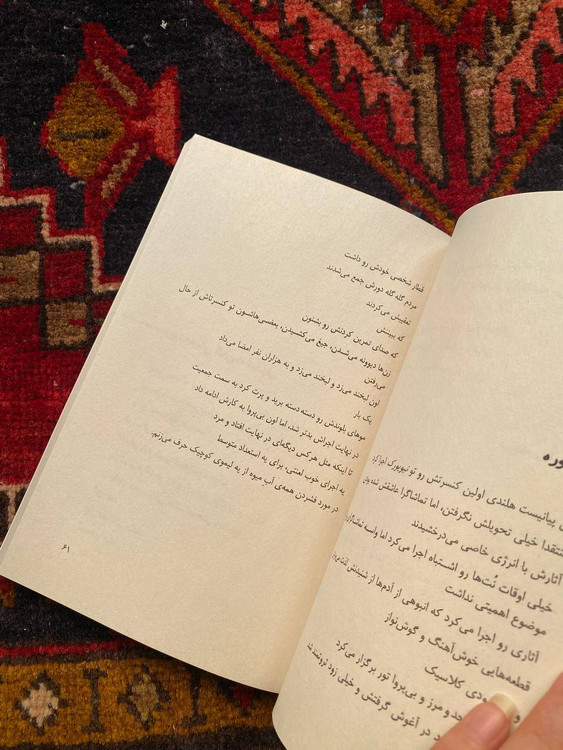 وره
پیانیست هلندی اولین کنسرتش رو تو نیویورک اجرا کرد
منتقدا خیلی تحویلش نگرفتن، اما تماشاگرا عاشقش شده بودن
آثارش با انرژی خاصی می‌درخشیدند
خیلی اوقات نُت‌ها رو اشتباه اجرا می‌کرد اما واسه تماشاگران
موضوع اهمیتی نداشت
آثاری رو اجرا می‌کرد که انبوهی از آدم‌ها از شنیدنش لذت
قطعه‌هایی خوش‌آهنگ و گوش‌نواز
و دی کلاسیک
حد و مرز و بی‌پروا تور برگزار می‌کرد
در آغوش گرفتش و خیلی زود ثروتمند شد
قطار شخصی خودش رو داشت
مردم گله گله دورش جمع می‌شدند
تعقیبش می‌کردند
که ببیننش
که صدای تمرین کردنش رو بشنون
زن‌ها دیوونه می‌شدن، جیغ می‌کشیدن، بعضی‌هاشون تو کنسرتاش از حال
می‌رفتن
اون لبخند می‌زد و لبخند می‌زد و به هزاران نفر امضا می‌داد
یک بار
موهای بلوندش رو دسته دسته برید و پرت کرد به سمت جمعیت
در نهایت اجراش بدتر شد، اما اون بی‌پروا به کارش ادامه داد
تا اینکه مثل هرکس دیگه‌ای در نهایت افتاد و مرد
یه اجرای خوب لعنتی، برای یه استعداد متوسط
در مورد فشردن همه‌ی آب میوه از یه لیموی کوچیک حرف می‌زنیم.
۶۱